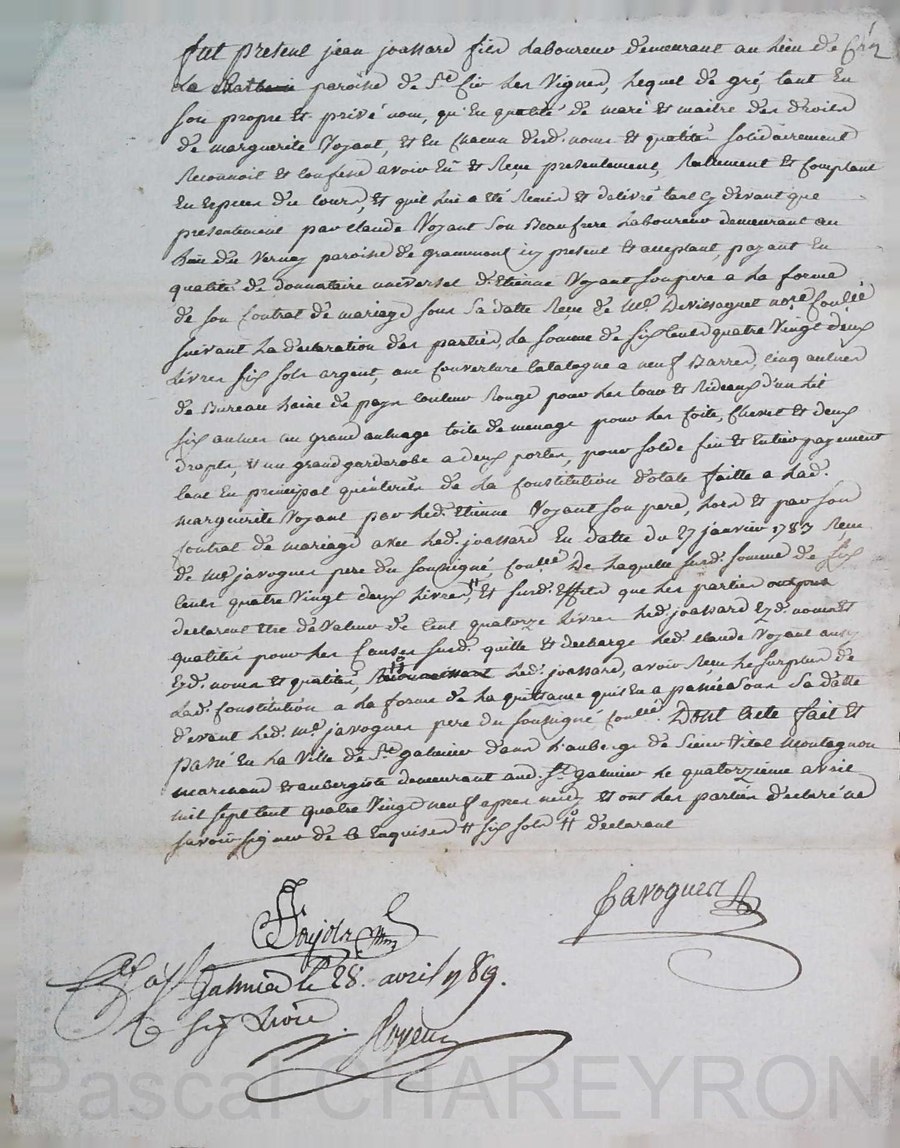 fut present jean joassard fils Laboureur demeurant au lieu de
La paroisse de St Cir les Vignes, Lequel de gré, tant en
son propre et privé nom, qu'en qualité de mari et maitre des droits
de marguerite Voyant, et en chacun desd. noms et qualités solidairement
Reconnoit et confesse avoir Eu et Reçu presentement, Réellement et Comptant
en Espèces du cours, et qui lui a été Remis et delivré tant cy devant que
presentement par claude Voyant son Beaufrere Laboureur demeurant au
Lieu du Vernay paroisse de grammont icy present et acceptant, payant en
qualité de donnataire universel d'Etienne Voyant son pere a la forme
de son Contrat de mariage sous sa datte Reçu de Me Devissaguet nore
suivant la declaration des parties, la somme de six cents quatre Vingt deux
Livres six sols argent, une Couverture Catalogne a neuf Barres, cinq aulnes
de Bureau Laine de pays couleur Rouge pour les tour et Rideaux d'un lit
six aulnes un grand aulnage toile de menage pour les Coite, Chevet et deux
draps, et un grand garderobe a deux portes, pour solde fin et Entier payement
tant En principal qu'interets de la Constitution dotale faitte a lad.
marguerite Voyant par led. Etienne Voyant son pere, Lors et par son
Contrat de mariage avec led. joassard En datte du 27 janvier 1783 Reçu
de Me javogues pere du soussigné, De laquelle susd. somme de six
cents quatre Vingt deux Livres, et susd. Effets que les parties
declarent être de Valeur de Cent quatorze Livres led. joassard Ezd. noms et
qualités pour les Causes susd. quitte et decharge led. Claude Voyant aussy
Ezd. noms et qualités, led. joassard, avoir Reçu le surplus de
lad. Constitution a la forme de la quittance qu'il en a passée sous sa datte
devant led. Me javogues pere du soussigné Dont acte fait et
passé En la Ville de St galmier dans l'auberge de sieur Vital Montagnon
marchand et aubergiste demeurant aud. St galmier le quatorzieme avril
mil sept cent quatre Vingt neuf apres midy et ont les parties declaré ne
savoir signer de ce Enquises # six sols # declarant
Javogues
galmier le 28. avril 1789.